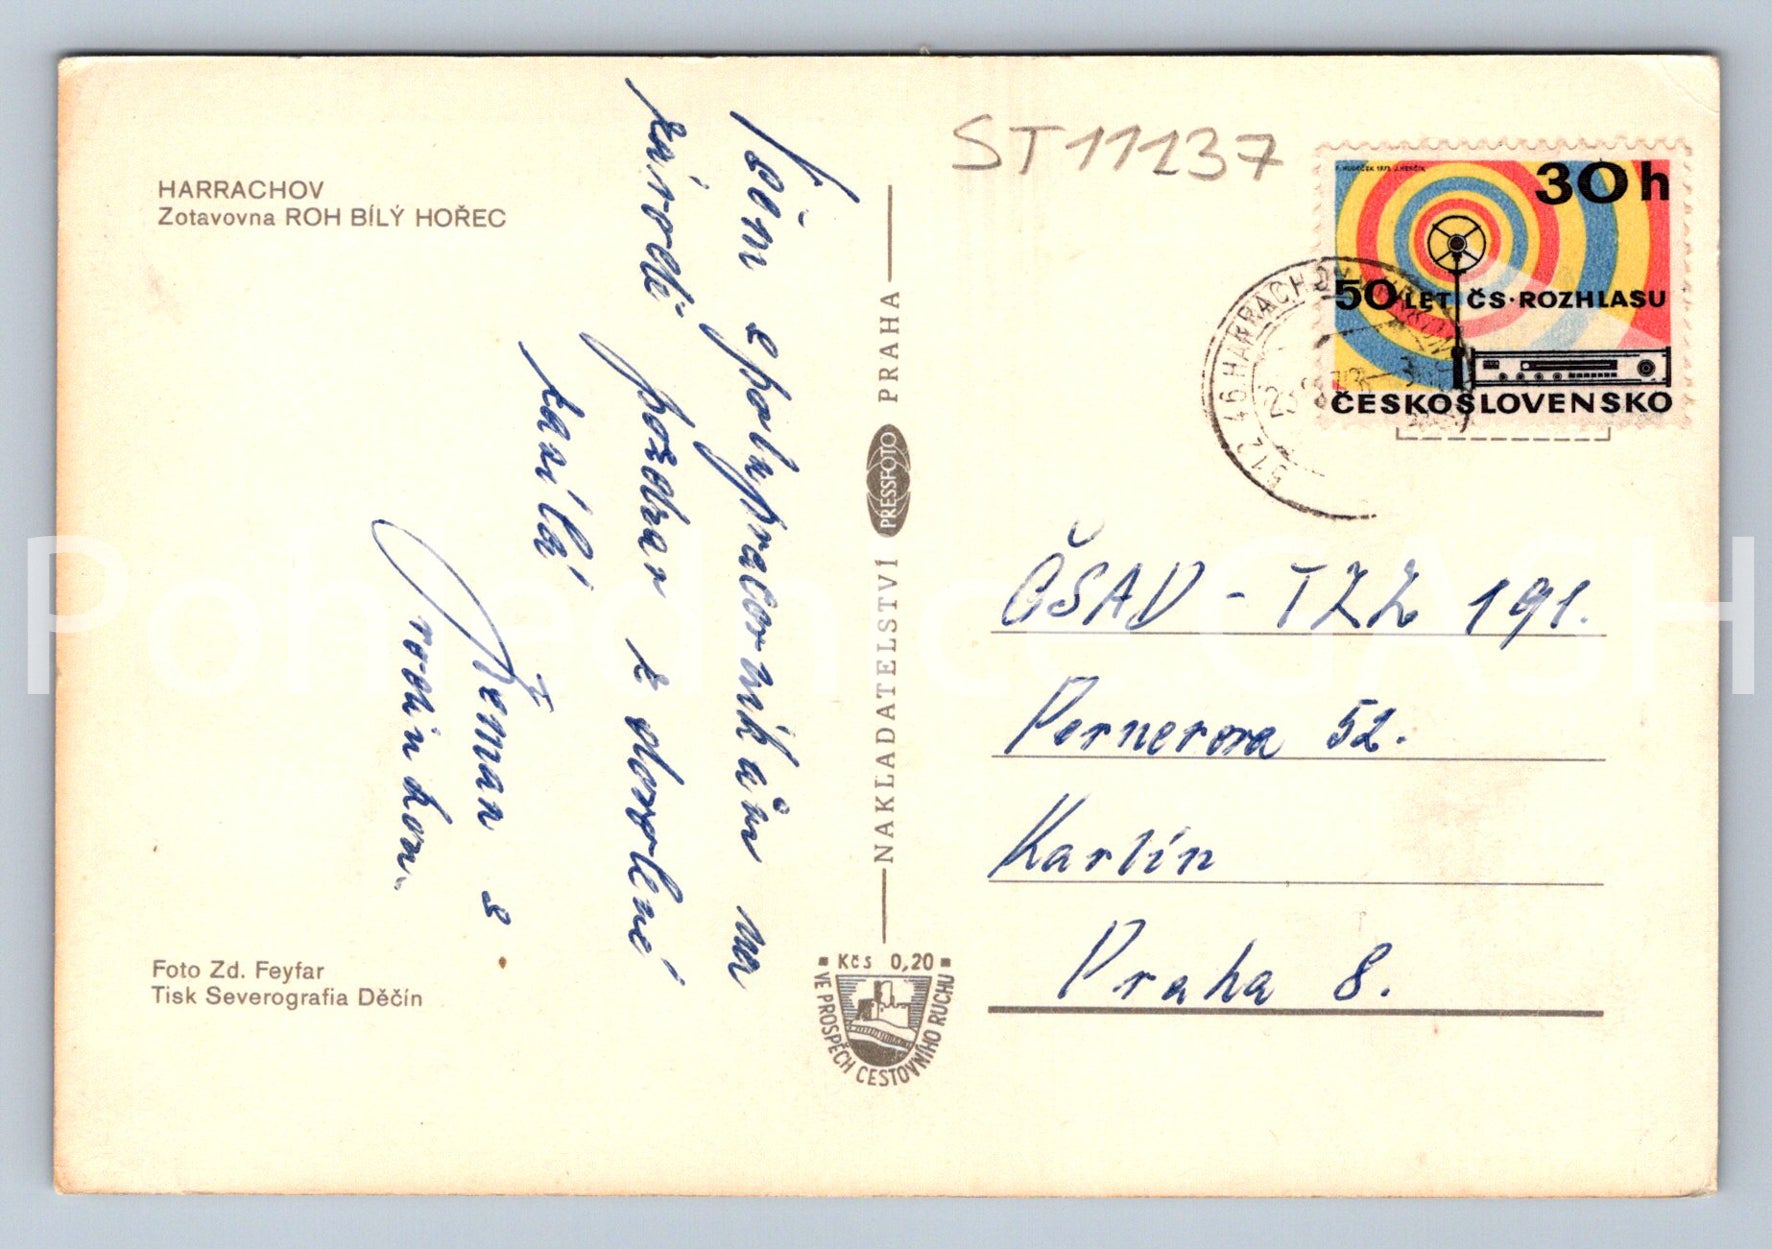 HARRACHOV
Zotavovna ROH BÍLÝ HOŘEC
Všem spolupracovníkům na
závodě pozdrav z dovolené
zasílá
Zeman s
rodinkou.
Foto Zd. Feyfar
Tisk Severografia Děčín
NAKLADATELSTVÍ PRESSFOTO PRAHA
Kčs 0,20
VE PROSPĚCH CESTOVNÍHO RUCHU
ST11137
30h
50 LET ČS·ROZHLASU
ČESKOSLOVENSKO
512 46 HARRACHOV
ČSAD - TZZ 191.
Pernerova 52.
Karlín
Praha 8.
Pohlednice GASH